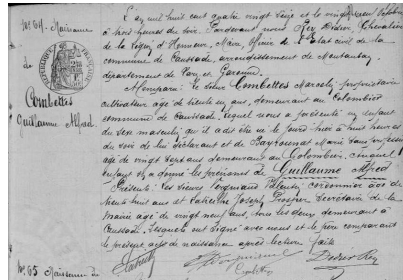 N° 64 Naissance
de
Combettes
Guillaume Alfred
RÉPUBLIQUE FRANÇAISE
L'an mil huit cent quatre vingt seize et le vingt octobre
à trois heures du soir. Pardevant nous Rey Didier, Chevalier
de la Légion d'Honneur, Maire, officier de l'Etat civil de la
commune de Caussade, arrondissement de Montauban
département de Tarn et Garonne.
A comparu: le sieur Combettes Marcelin propriétaire
cultivateur agé de trente ans, demeurant au Colombier
commune de Caussade. Lequel nous a présenté un enfant
du sexe masculin qu'il a dit être né le jourd'hier à huit heures
du soir de lui déclarant et de Marie sans profession
agée de vingt ans demeurant au Colombier. Auquel
enfant il a donné les prénoms de Guillaume Alfred
Présents: les sieurs cordonnier âgé de
trente huit ans et Joseph Prosper Secrétaire de la
Mairie agé de vingt neuf ans, tous les deux demeurant à
Caussade. Lesquels ont signé avec nous et le père comparant
le présent acte de naissance après lecture faite
Combettes
Didier Rey
N° 65 Naissance de